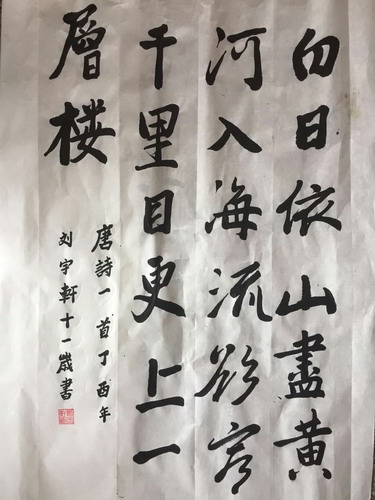 白日依山盡黄
河入海流欲窮
千里目更上一
層楼
唐詩一首丁酉年
刘宇軒十一歲書